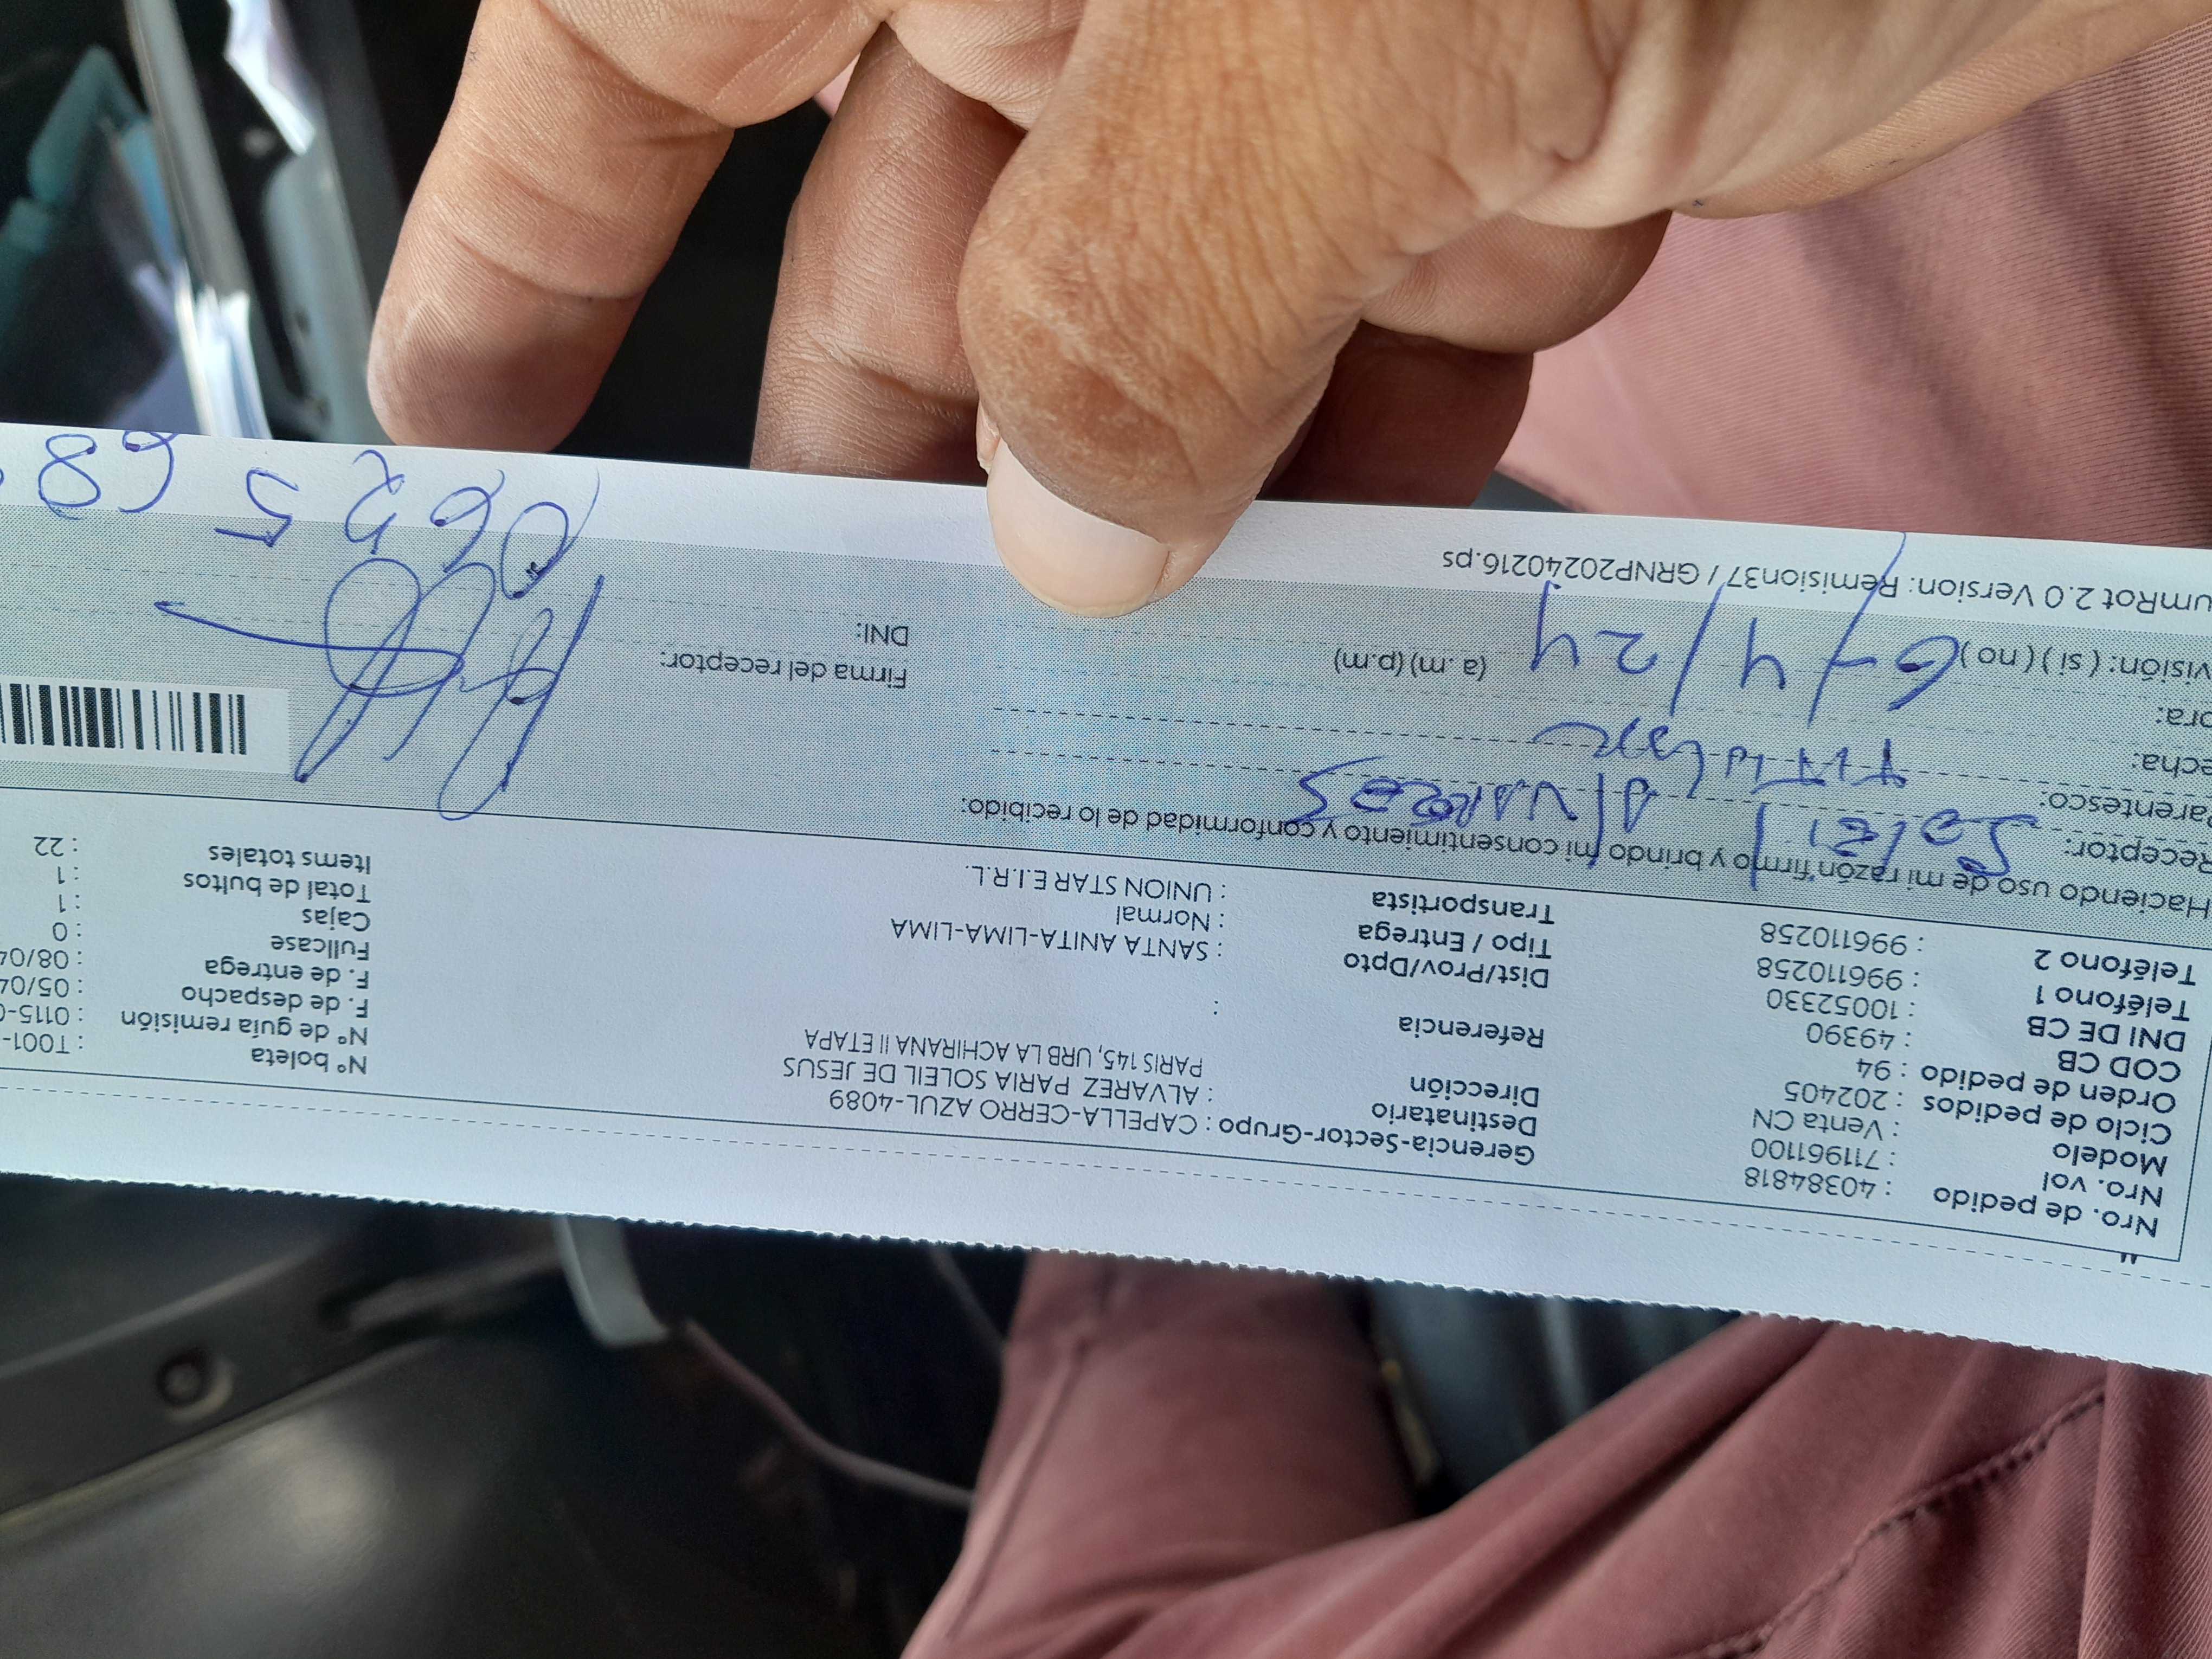 Nro. de pedido : 40384818
Nro. vol : 711961100
Modelo : Venta CN
Ciclo de pedidos : 202405
Orden de pedido : 94
COD CB : 49390
DNI DE CB : 10052330
Teléfono 1 : 996110258
Teléfono 2 : 996110258
Gerencia-Sector-Grupo : CAPELLA-CERRO AZUL-4089
Destinatario : ALVAREZ PARIA SOLEIL DE JESUS
Dirección PARIS 145, URB LA ACHIRANA II ETAPA
Referencia :
Dist/Prov/Dpto : SANTA ANITA-LIMA-LIMA
Tipo / Entrega : Normal
Transportista : UNION STAR E.I.R.L.
Nº boleta : T001-
Nº de guía remisión : 0115-0
F. de despacho : 05/04
F. de entrega : 08/04
Fullcase : 0
Cajas : 1
Total de bultos : 1
Items totales : 22
Haciendo uso de mi razón firmo y brindo mi consentimiento y conformidad de lo recibido:
Receptor: Soleil
Parentesco: Titular
echa:
ora: 6/4/24 (a. m) (p.m)
visión: ( si ) ( no )
Firma del receptor:
DNI:
umRot 2.0 Version: Remision37 / GRNP20240216.ps